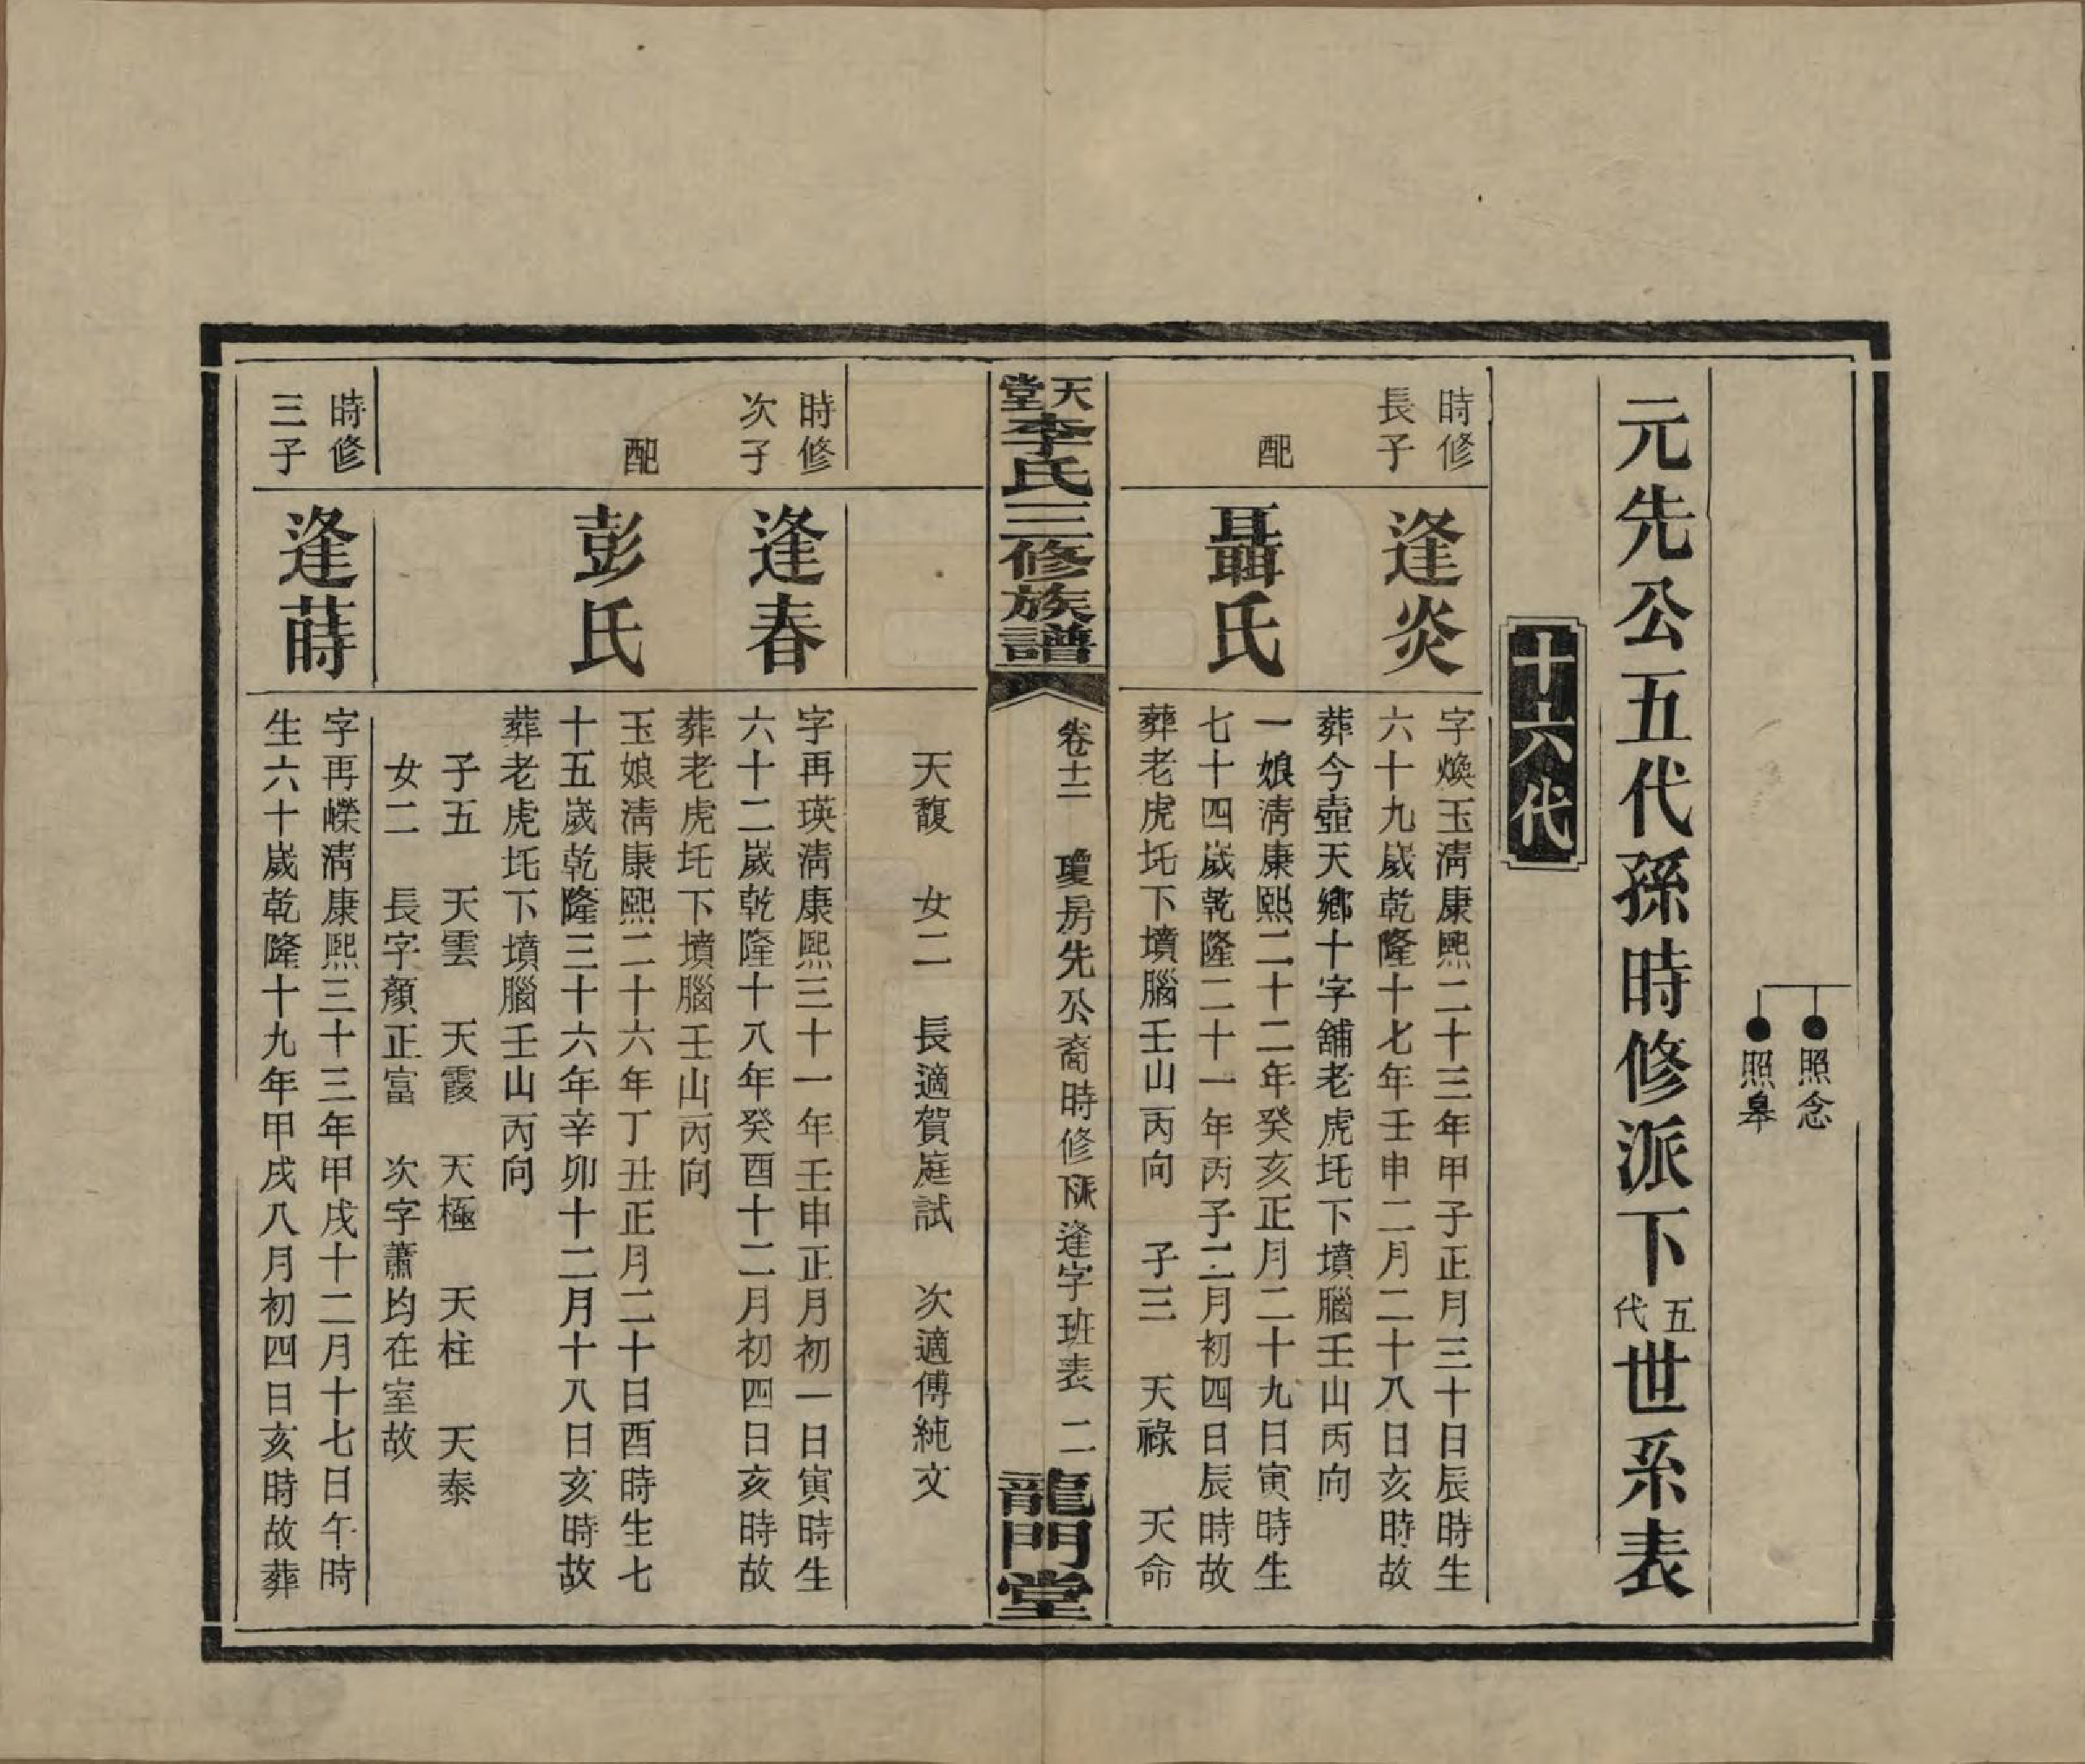 照念
照皋
元先公五代孫時修派下五代世系表
十六代
時修
長子
逢炎
字煥玉清康熙二十三年甲子正月三十日辰時生
六十九歲乾隆十七年壬申二月二十八日亥時故
葬今壺天鄉十字舖老虎圫下墳腦壬山丙向
配
聶氏
一娘清康熙二十二年癸亥正月二十九日寅時生
七十四歲乾隆二十一年丙子二月初四日辰時故
葬老虎圫下墳腦壬山丙向 子三 天祿 天命
天堂李氏三修族譜
卷十二 瓊房先公裔時修派下逢字班表 二
龍門堂
天馥 女二 長適賀庭試 次適傅純文
時修
次子
逢春
字再瑛清康熙三十一年壬申正月初一日寅時生
六十二歲乾隆十八年癸酉十二月初四日亥時故
葬老虎圫下墳腦壬山丙向
配
彭氏
玉娘清康熙二十六年丁丑正月二十日酉時生七
十五歲乾隆三十六年辛卯十二月十八日亥時故
葬老虎圫下墳腦壬山丙向
子五 天雲 天霞 天極 天柱 天泰
女二 長字顏正富 次字蕭均在室故
時修
三子
逢蒔
字再嶸清康熙三十三年甲戌十二月十七日午時
生六十歲乾隆十九年甲戌八月初四日亥時故葬